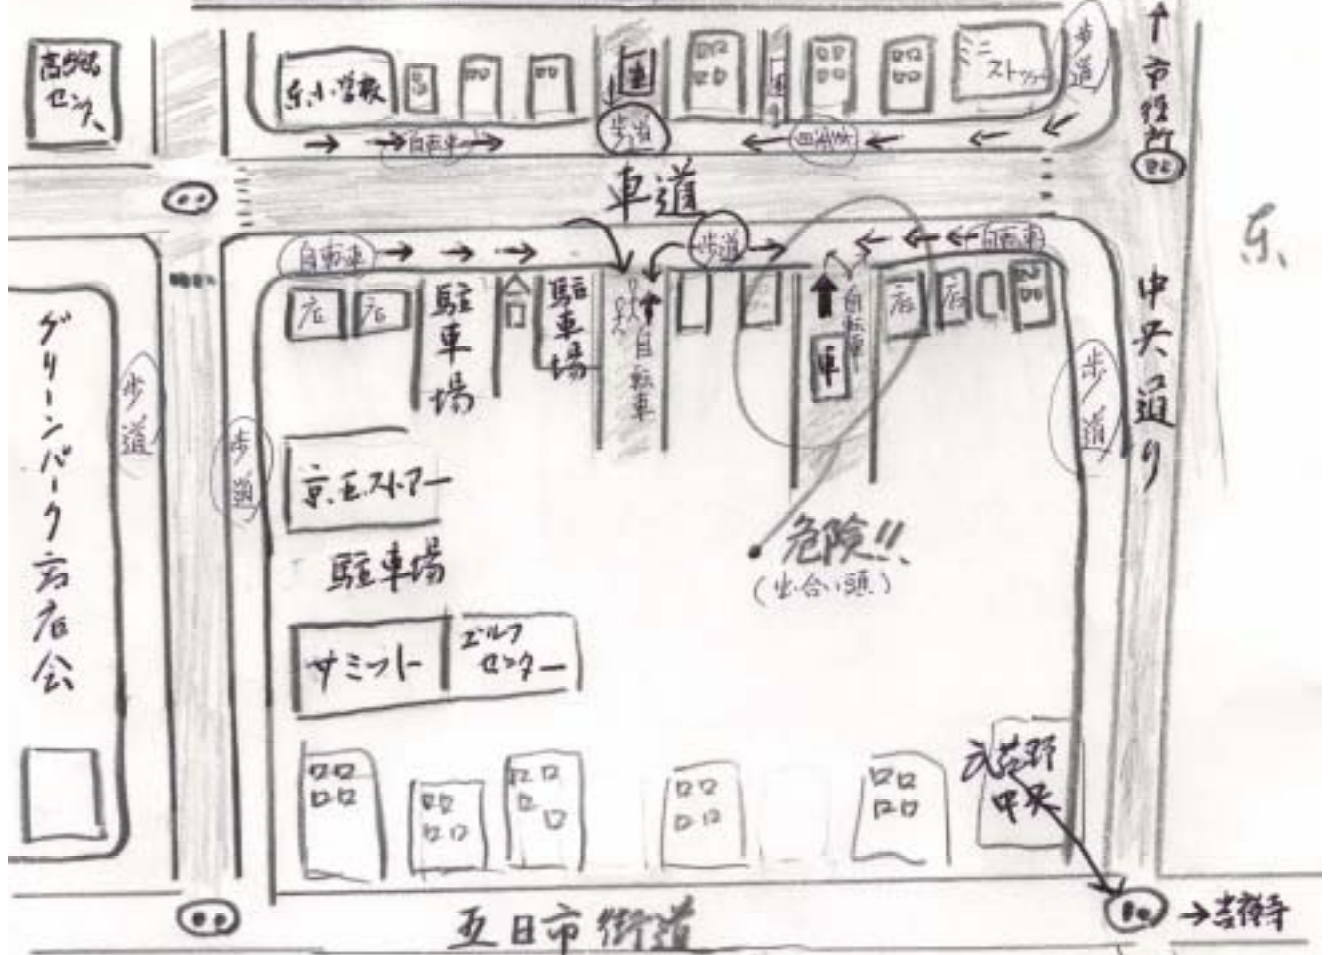 高齢者
センター
東小学校
車
歩道
車
ミニ
ストップ
歩道
市役所
自転車
自転車
車道
東
自転車
歩道
自転車
店
店
駐車場
駐車場
自転車
車
自転車
店
店
中央通り
グリーンパーク商店会
歩道
歩道
歩道
京王ストアー
駐車場
危険!!
(出合い頭)
サミット
ゴルフ
センター
武蔵野
中央
五日市街道
→吉祥寺